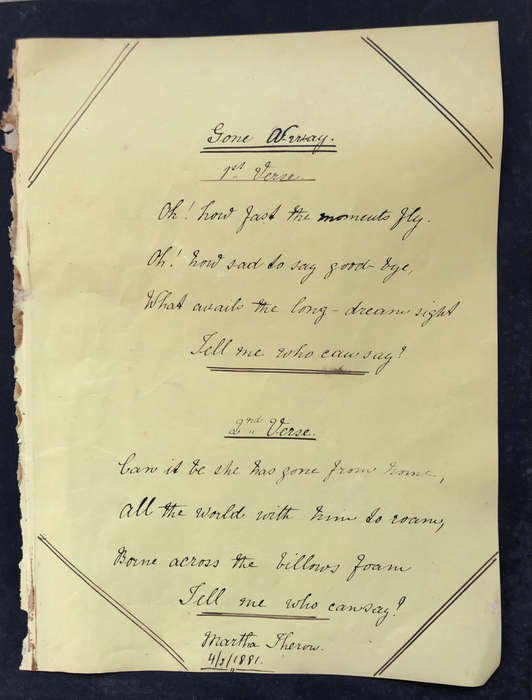 Gone Away.
1st Verse
Oh! how fast the moments fly.
Oh! how sad to say good-bye,
What avails the long-dream sight
Tell me who can say?
2nd Verse.
Can it be she has gone from home,
All the world with him to roam,
Borne across the billows foam
Tell me who can say?
Martha
4/2/1881.